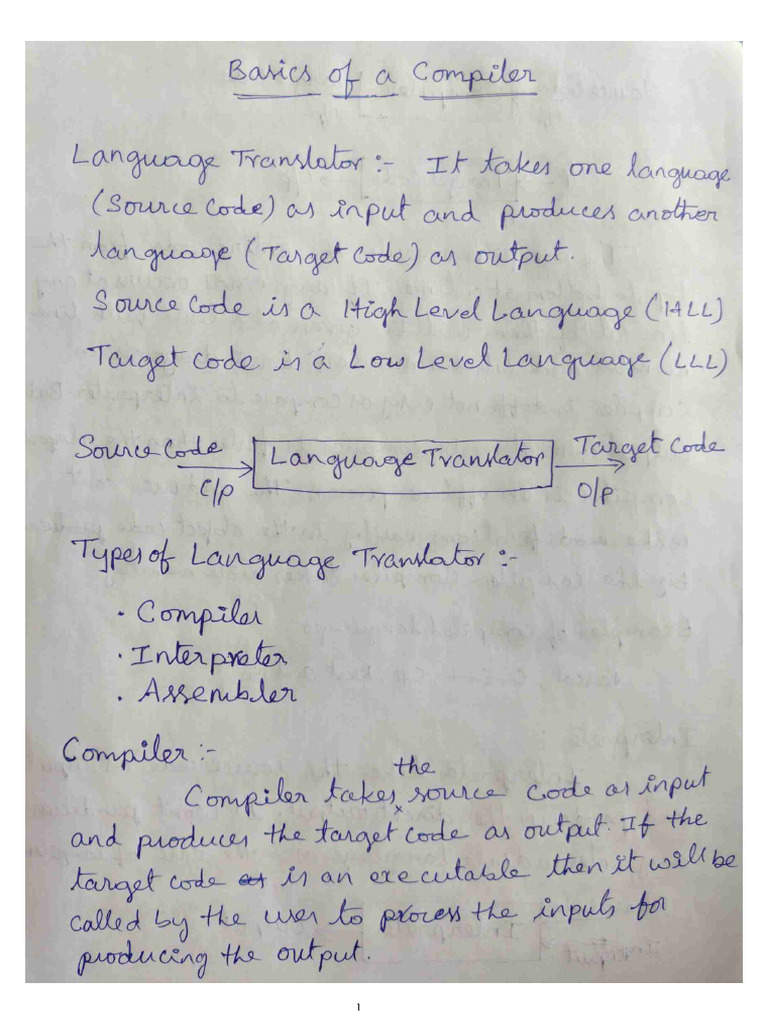 Basics of a Compiler
Language Translator :- It takes one language
(Source Code) as input and produces another
language (Target Code) as output.
Source Code is a High Level Language (HLL)
Target Code is a Low Level Language (LLL)
Source Code Language Translator Target Code
I/P O/P
Types of Language Translator :-
• Compiler
• Interpreter
• Assembler
Compiler :-
the
Compiler takes source code as input
and produces the target code as output. If the
target code is an executable then it will be
called by the user to process the inputs for
producing the output.
1